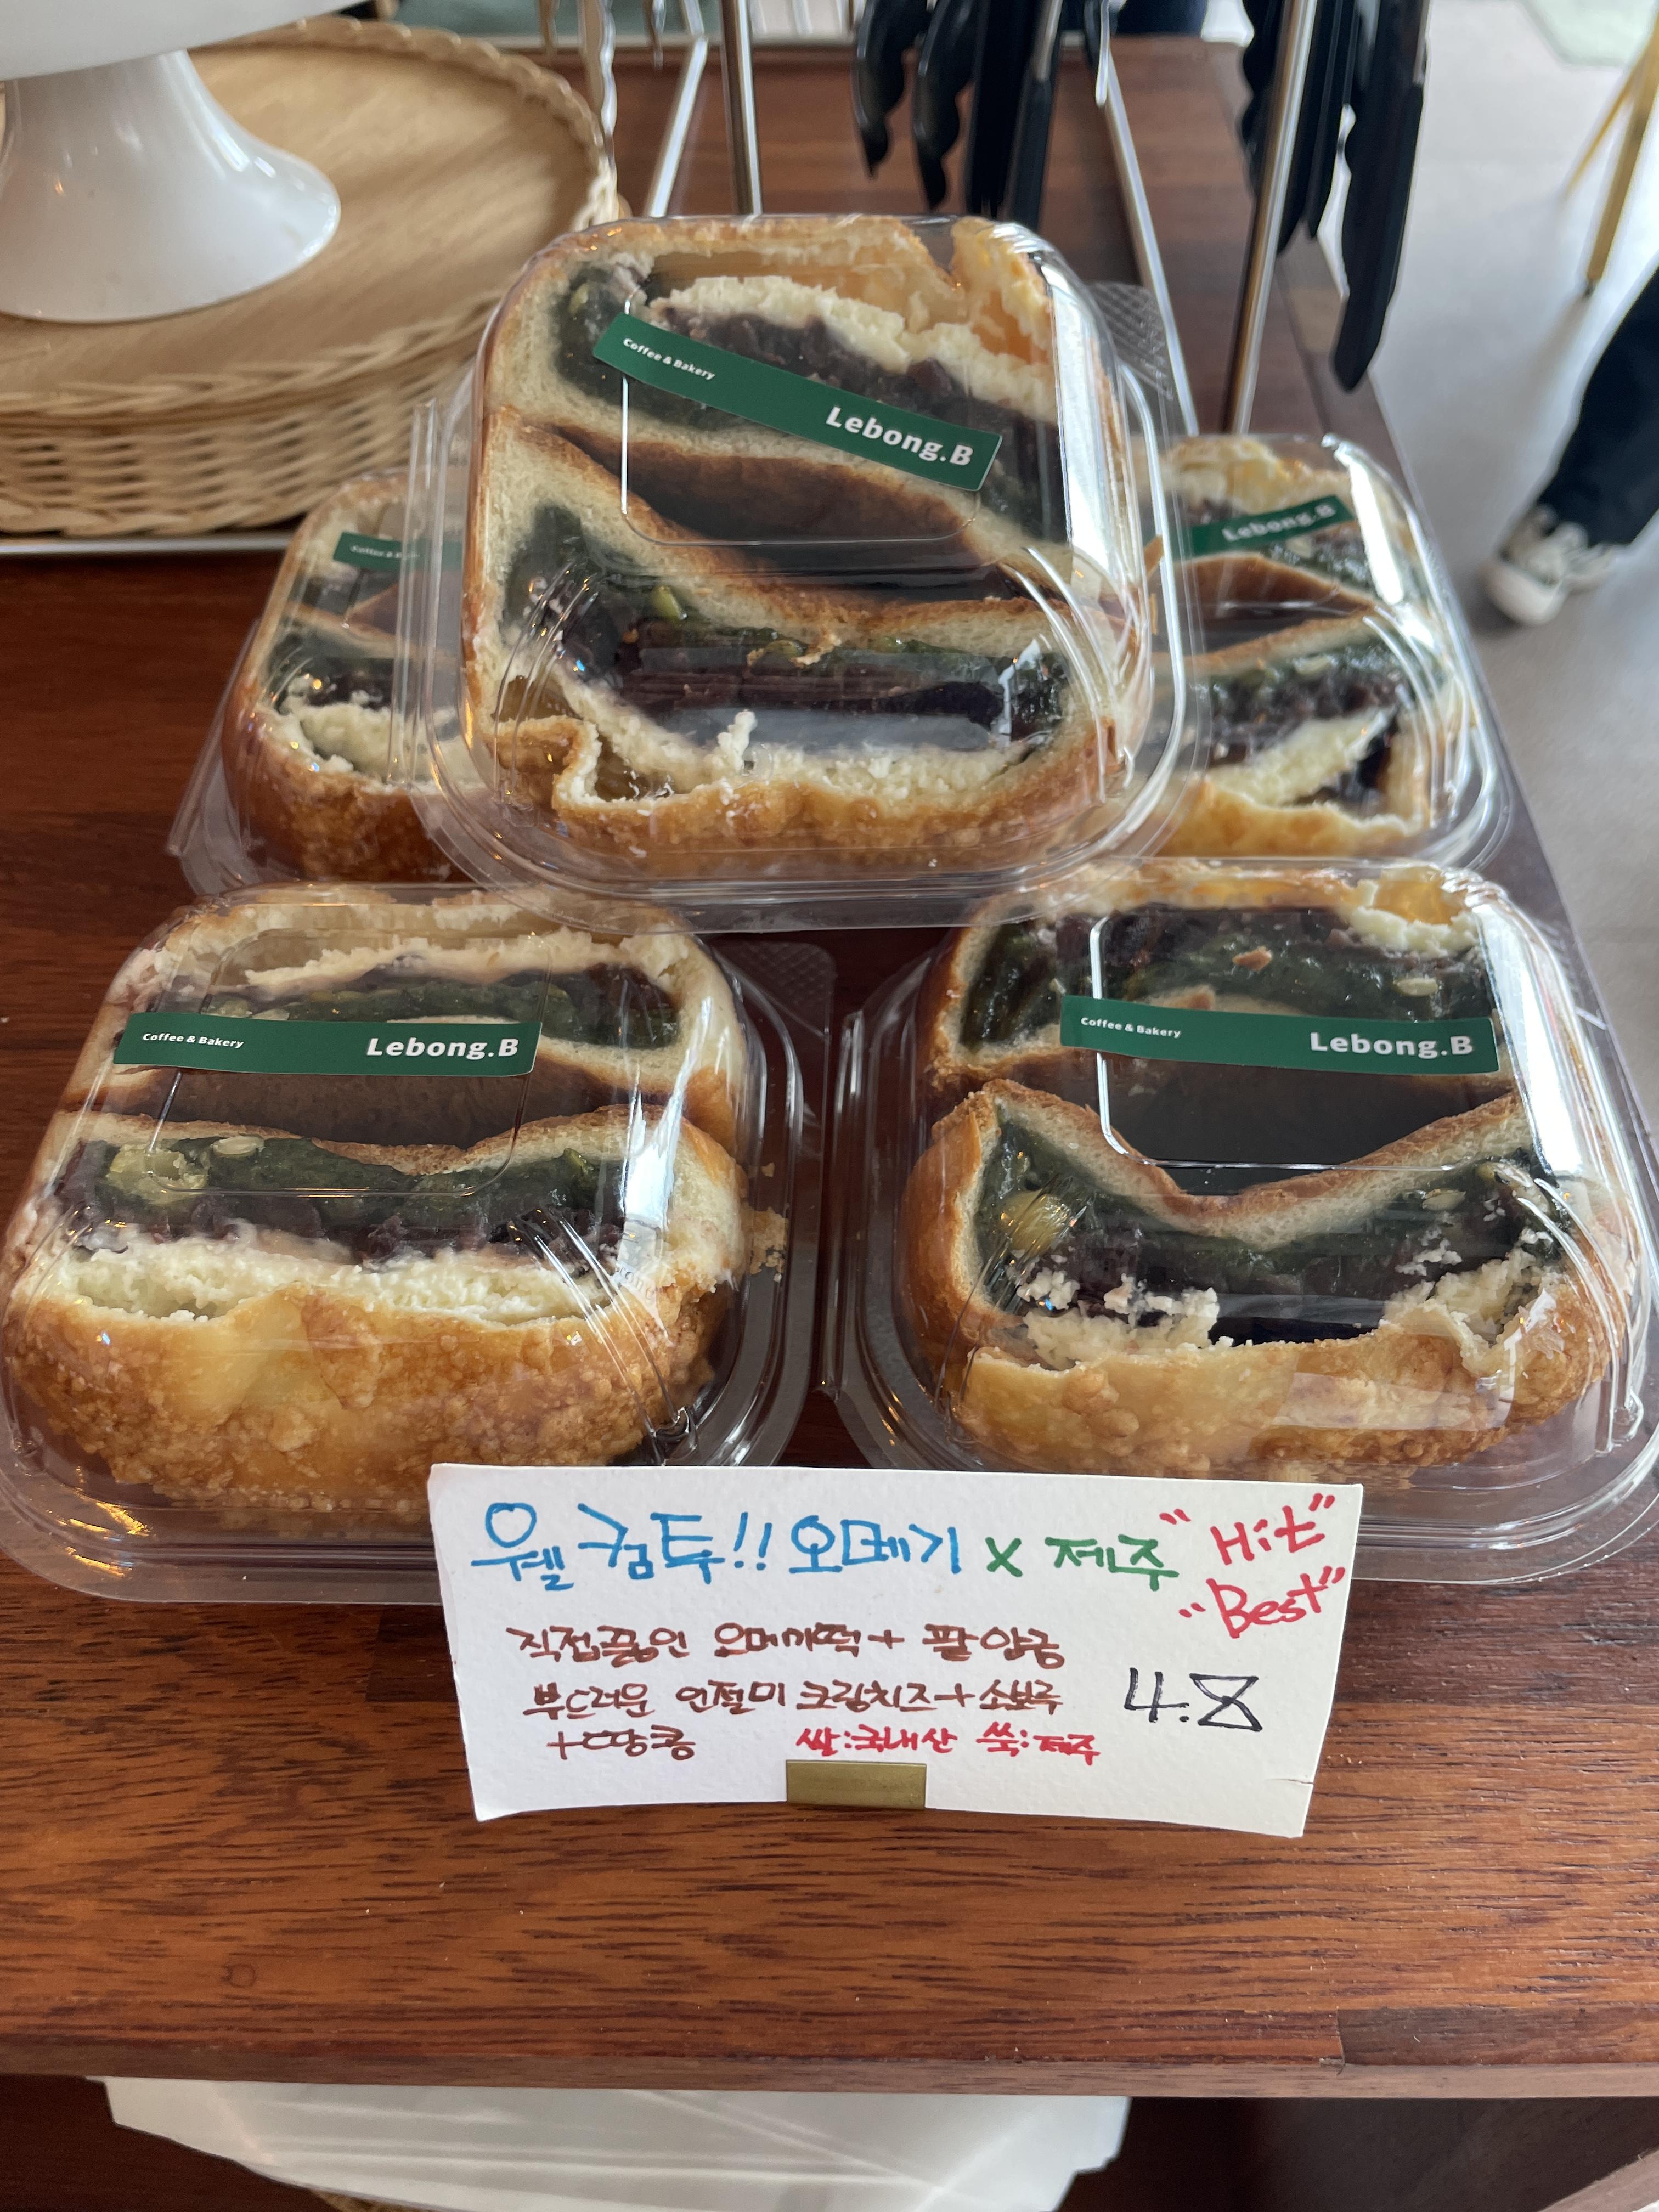 Coffee & Bakery Lebong.B
Coffee & B
Lebong.B
Coffee & Bakery Lebong.B
Coffee & Bakery Lebong.B
웰컴투!! 오메기 x 제주 "Hit"
"Best"
직접끓인 오메기떡 + 팥앙금
부드러운 인절미 크림치즈 + 소보루 4.8
+ 땅콩 쌀:국내산 쑥:제주